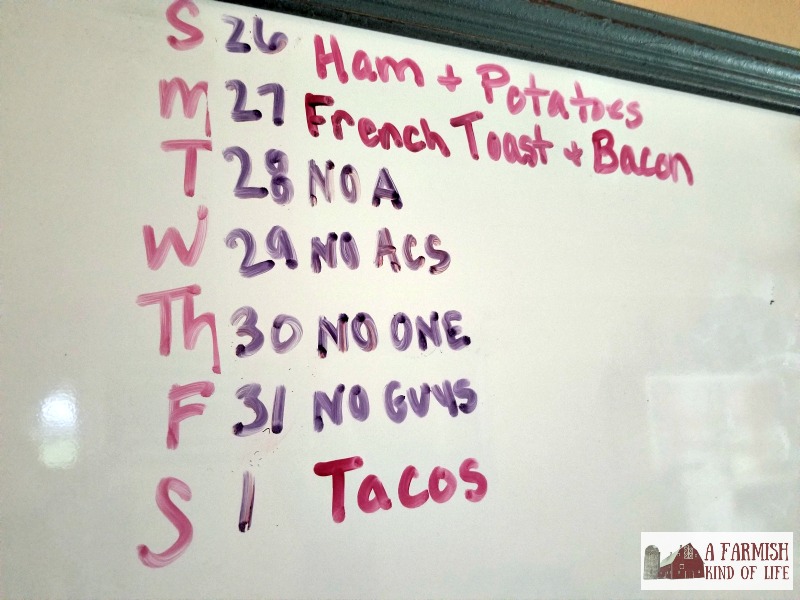 S 26 Ham + Potatoes
M 27 French Toast + Bacon
T 28 NO A
W 29 NO ACS
Th 30 NO ONE
F 31 NO GUYS
S 1 Tacos
A FARMISH
KIND OF LIFE